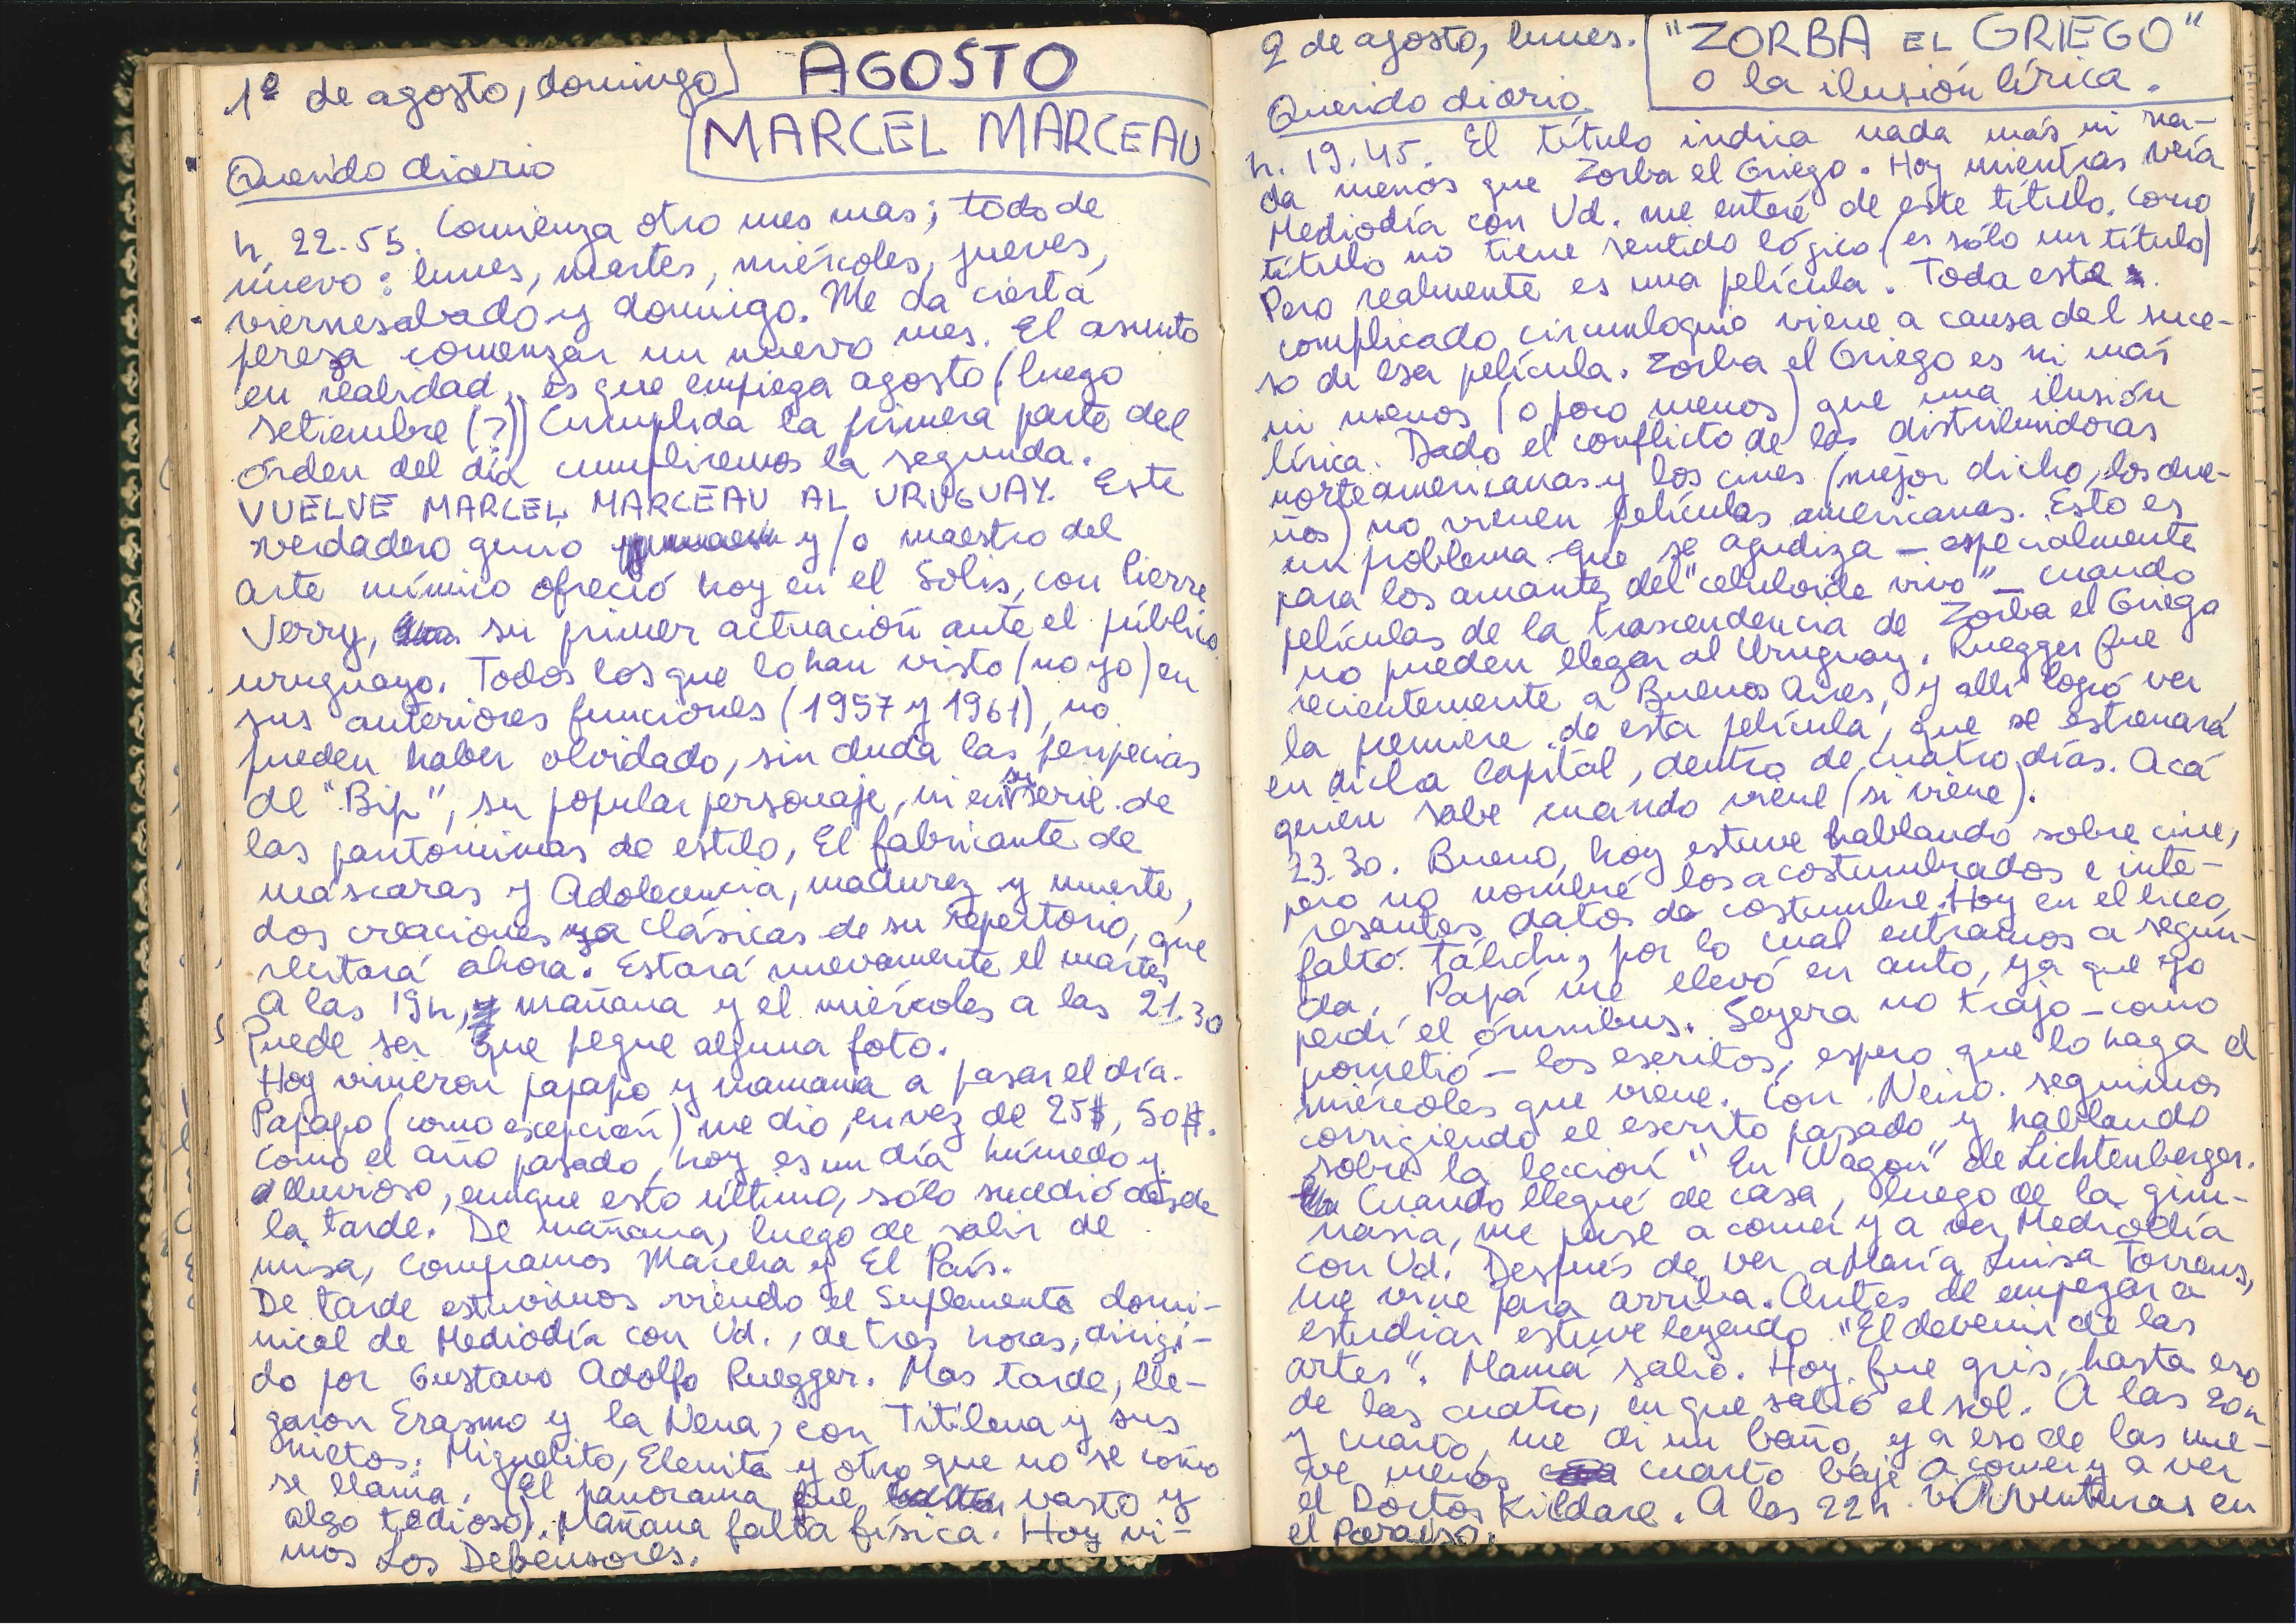 1º de agosto, domingo
AGOSTO
MARCEL MARCEAU
Querido diario
h. 22.55. Comienza otro mes mas; todo de
nuevo: lunes, martes, miércoles, jueves,
viernesabado y domigo. Me da cierta
pereza comenzar un nuevo mes. El asunto
en realidad, es que empieza agosto (luego
setiembre (?)) Cumplida la primera parte del
órden del día cumpliremos la segunda.
VUELVE MARCEL MARCEAU AL URUGUAY. Este
verdadero genio y/o maestro del
arte mímico ofreció hoy en el Solis, con Pierre
Verry, su primer actuación ante el público
uruguayo. Todos los que lo han visto (no yo) en
sus anteriores funciones (1957 y 1961), no
pueden haber olvidado, sin duda las peripecias
de "Bip", su popular personaje, ni en su serie de
las pantomimas de estilo, El fabricante de
máscaras y Adolecencia, madurez y muerte,
dos creaciones ya clásicas de su repertorio, que
reitará ahora. Estará nuevamente el martes
A las 19h, mañana y el miércoles a las 21.30
Puede ser que pegue alguna foto.
Hoy vinieron papapo y mamama a pasar el día.
Papapo (como excepción) me dio, en vez de 25$, 50$.
Como el año pasado, hoy es un día húmedo y
lluvioso, aunque esto último, sólo sucedió desde
la tarde. De mañana, luego de salir de
misa, compramos Marcha y El País.
De tarde estuvimos viendo el Suplemento domi-
nical de Mediodía con Vd., de tres horas, dirigi-
do por Gustavo Adolfo Ruegger. Mas tarde, lle-
garon Erasmo y la Nena, con Titilena y sus
nietos: Miguelito, Elenita y otro que no se como
se llama. (El panorama fue vasto y
algo tedioso). Mañana falta física. Hoy vi-
mos Los Defensores.
2 de agosto, lunes.
"ZORBA EL GRIEGO"
o la ilusión lírica.
Querido diario
h. 19.45. El título indica nada más ni na-
da menos que Zorba el Griego. Hoy mientras veía
Mediodía con Vd. me enteré de este título. Como
título no tiene sentido lógico (es sólo un título)
Pero realmente es una película. Toda este
complicado circunloquio viene a causa del suce-
so de esa película. Zorba el Griego es ni más
ni menos (o poco menos) que una ilusión
lírica. Dado el conflicto de las distribuidoras
norteamericanas y los cines (mejor dicho, los due-
ños) no vienen películas americanas. Esto es
un problema que se agudiza – especialmente
para los amantes del "celuloide vivo" – cuando
películas de la trascendencia de Zorba el Griego
no pueden llegar al Uruguay. Ruegger fue
recientemente a Buenos Aires, y allí logró ver
la premiere de esta película, que se estrenará
en dicla Capital, dentro de cuatro días. Acá
quién sabe cuando viene (si viene).
23.30. Bueno, hoy estuve hablando sobre cine,
pero no nombré los acostumbrados e inte-
resantes datos de costumbre. Hoy en el liceo,
faltó por lo cual entramos a segun-
da. Papá me llevó en auto, ya que yo
perdí el ómnibus. Seyera no trajo – como
prometió – los escritos; espero que lo haga el
miércoles que viene. Con Neira seguimos
corrigiendo el escrito pasado y hablando
sobre la lección "En Wagon" de Lichtenberger.
Cuando llegué de casa, luego de la gim-
nasia, me puse a comer y a ver Mediodía
con Vd. Después de ver a María Luisa Torrens,
me vine para arriba. Antes de empezar a
estudiar estuve leyendo "El devenir de las
artes". Mamá salió. Hoy fue gris, hasta eso
de las cuatro, en que salió el sol. A las 20h
y cuarto, me di un baño, y a eso de las nue-
ve menos cuarto bajé a comer y a ver
el Doctor Kildare. A las 22h. vi Aventuras en
el Paraíso.